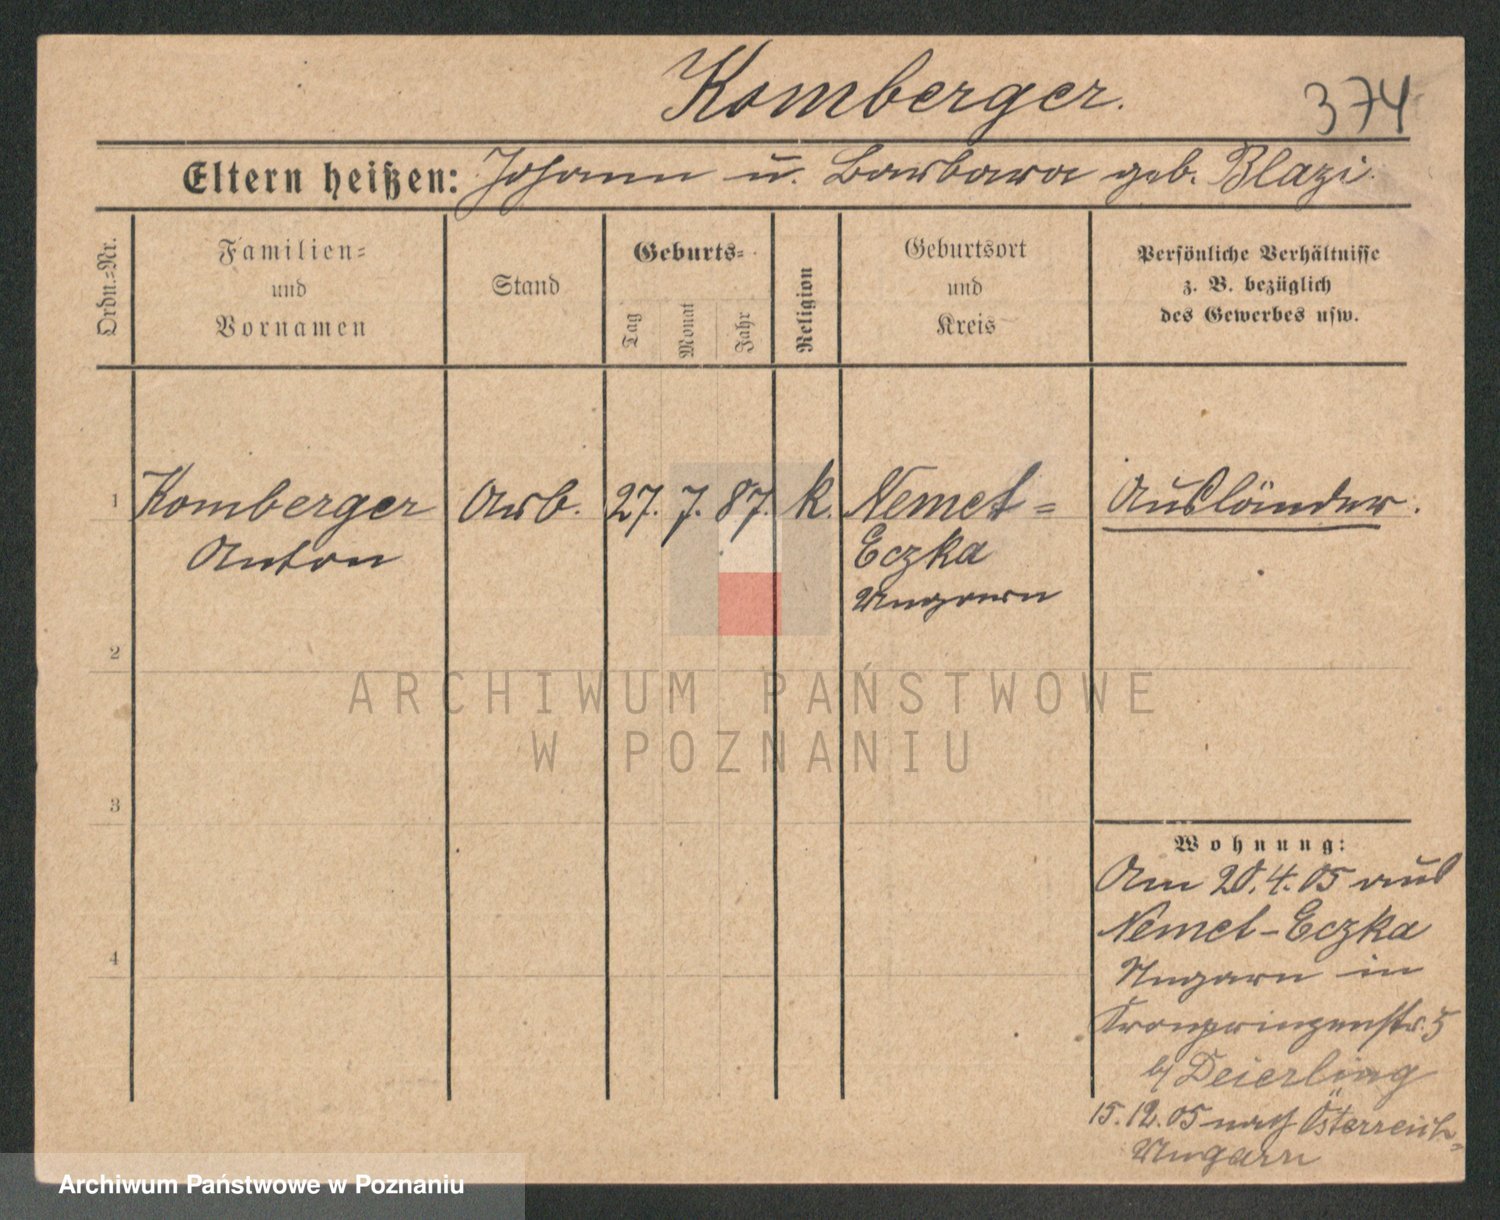 Komberger.
374
Eltern heißen: Johann u. Barbara geb. Blazi.
Ordn.=Nr.
Familien=
und
Vornamen
Stand
Geburts=
Tag
Monat
Jahr
Religion
Geburtsort
und
Kreis
Persönliche Verhältnisse
z. B. bezüglich
des Gewerbes usw.
1 Komberger Arb. 27. 7. 87. k. Nemet= Ausländer.
Anton Eczka
Ungarn
2
ARCHIWUM PAŃSTWOWE
W POZNANIU
3
Wohnung:
Am 20.4.05 aus
Nemet-Eczka
4
Ungarn in
Kronprinzenstr. 5
b/ Deierling
15.12.05 nach Österreich=
Ungarn
Archiwum Państwowe w Poznaniu